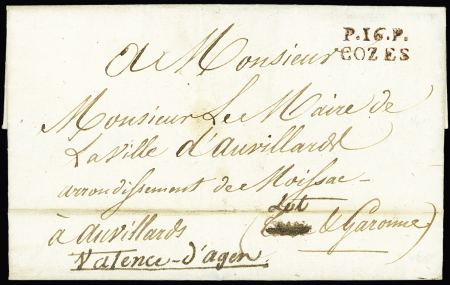 P.16.P.
COZES
A Monsieur
Monsieur Le Maire de
La Ville d'auvillards
arrondissement de Moissac-
Lot
à auvillards ( & Garonne)
Valence-d'agen